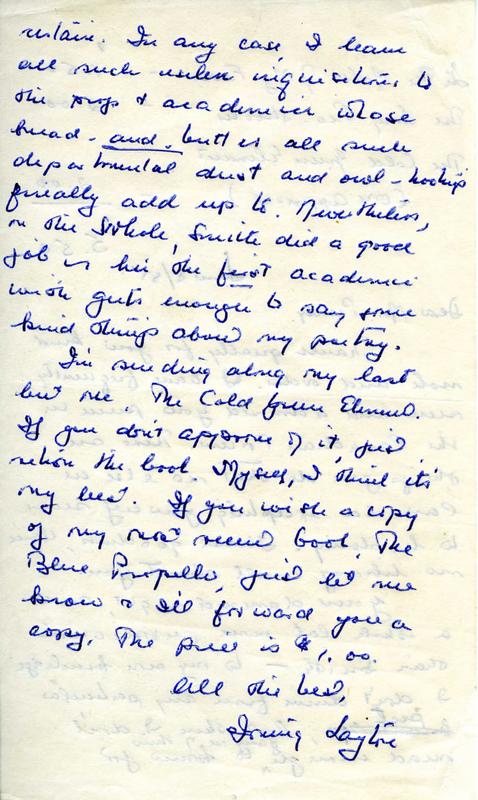 In any case, I leave
all such useless inquisitions to
the profs & academics whose
bread-and-butter all such
departmental dust and owl-hootings
finally add up to. Nevertheless,
on the whole, Smith did a good
job & he's the first academic
with guts enough to say some
kind things about my poetry.
I'm sending along my last
but one. The Cold Green Element.
If you don't approve of it, just
return the book. Myself, I think it's
my best. If you wish a copy
of my most recent book, The
Blue Propeller, just let me
know & I'll forward you a
copy. The price is $1.00.
All the best,
Irving Layton